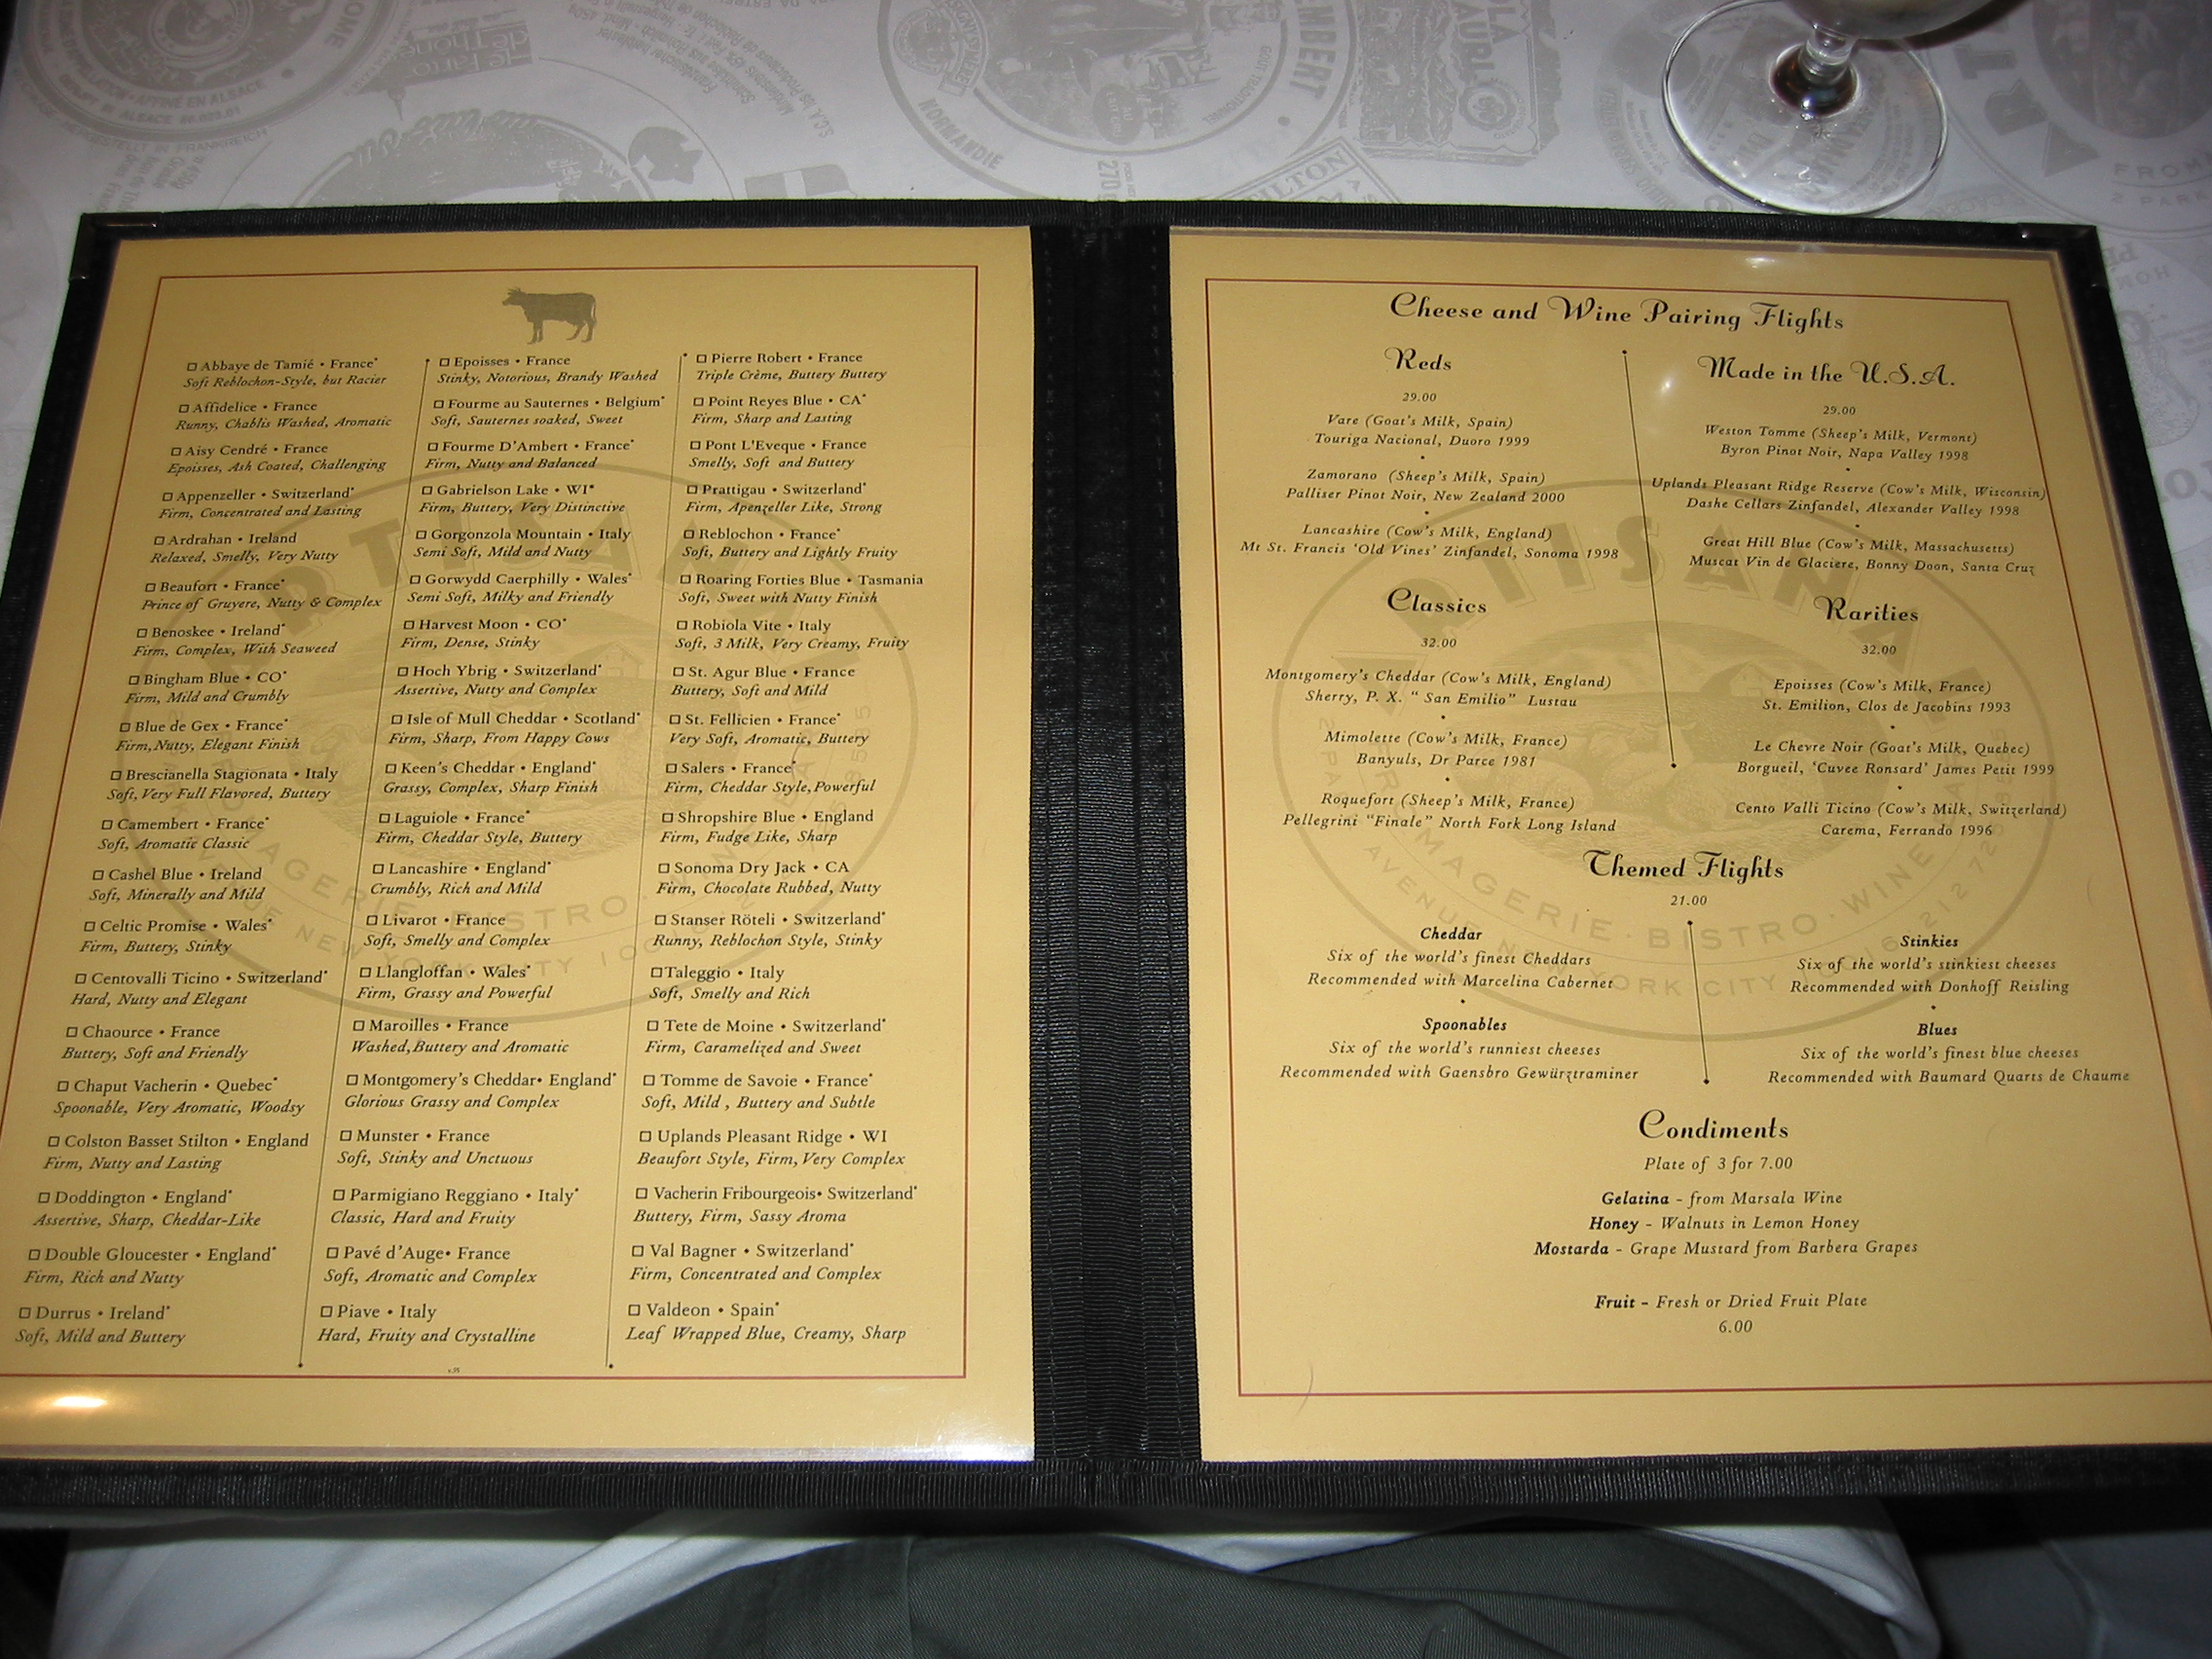 Abbaye de Tamié • France*
Soft Reblochon-Style, but Racier
Affidelice • France
Runny, Chablis Washed, Aromatic
Aisy Cendré • France
Epoisses, Ash Coated, Challenging
Appenzeller • Switzerland*
Firm, Concentrated and Lasting
Ardrahan • Ireland
Relaxed, Smelly, Very Nutty
Beaufort • France*
Prince of Gruyere, Nutty & Complex
Benoskee • Ireland*
Firm, Complex, With Seaweed
Bingham Blue • CO*
Firm, Mild and Crumbly
Blue de Gex • France*
Firm, Nutty, Elegant Finish
Brescianella Stagionata • Italy
Soft, Very Full Flavored, Buttery
Camembert • France*
Soft, Aromatic Classic
Cashel Blue • Ireland
Soft, Minerally and Mild
Celtic Promise • Wales*
Firm, Buttery, Stinky
Centovalli Ticino • Switzerland*
Hard, Nutty and Elegant
Chaource • France
Buttery, Soft and Friendly
Chaput Vacherin • Quebec*
Spoonable, Very Aromatic, Woodsy
Colston Basset Stilton • England
Firm, Nutty and Lasting
Doddington • England*
Assertive, Sharp, Cheddar-Like
Double Gloucester • England*
Firm, Rich and Nutty
Durrus • Ireland*
Soft, Mild and Buttery
Epoisses • France
Stinky, Notorious, Brandy Washed
Fourme au Sauternes • Belgium*
Soft, Sauternes soaked, Sweet
Fourme D'Ambert • France*
Firm, Nutty and Balanced
Gabrielson Lake • WI*
Firm, Buttery, Very Distinctive
Gorgonzola Mountain • Italy
Semi Soft, Mild and Nutty
Gorwydd Caerphilly • Wales*
Semi Soft, Milky and Friendly
Harvest Moon • CO*
Firm, Dense, Stinky
Hoch Ybrig • Switzerland*
Assertive, Nutty and Complex
Isle of Mull Cheddar • Scotland*
Firm, Sharp, From Happy Cows
Keen's Cheddar • England*
Grassy, Complex, Sharp Finish
Laguiole • France*
Firm, Cheddar Style, Buttery
Lancashire • England*
Crumbly, Rich and Mild
Livarot • France
Soft, Smelly and Complex
Llangloffan • Wales*
Firm, Grassy and Powerful
Maroilles • France
Washed, Buttery and Aromatic
Montgomery's Cheddar • England*
Glorious Grassy and Complex
Munster • France
Soft, Stinky and Unctuous
Parmigiano Reggiano • Italy*
Classic, Hard and Fruity
Pavé d'Auge • France
Soft, Aromatic and Complex
Piave • Italy
Hard, Fruity and Crystalline
Pierre Robert • France
Triple Crème, Buttery Buttery
Point Reyes Blue • CA*
Firm, Sharp and Lasting
Pont L'Eveque • France
Smelly, Soft and Buttery
Prattigau • Switzerland*
Firm, Apenzeller Like, Strong
Reblochon • France*
Soft, Buttery and Lightly Fruity
Roaring Forties Blue • Tasmania
Soft, Sweet with Nutty Finish
Robiola Vite • Italy
Soft, 3 Milk, Very Creamy, Fruity
St. Agur Blue • France
Buttery, Soft and Mild
St. Fellicien • France*
Very Soft, Aromatic, Buttery
Salers • France*
Firm, Cheddar Style, Powerful
Shropshire Blue • England
Firm, Fudge Like, Sharp
Sonoma Dry Jack • CA
Firm, Chocolate Rubbed, Nutty
Stanser Röteli • Switzerland*
Runny, Reblochon Style, Stinky
Taleggio • Italy
Soft, Smelly and Rich
Tete de Moine • Switzerland*
Firm, Caramelized and Sweet
Tomme de Savoie • France*
Soft, Mild , Buttery and Subtle
Uplands Pleasant Ridge • WI
Beaufort Style, Firm, Very Complex
Vacherin Fribourgeois • Switzerland*
Buttery, Firm, Sassy Aroma
Val Bagner • Switzerland*
Firm, Concentrated and Complex
Valdeon • Spain*
Leaf Wrapped Blue, Creamy, Sharp
Cheese and Wine Pairing Flights
Reds
29.00
Vare (Goat's Milk, Spain)
Touriga Nacional, Duoro 1999
Zamorano (Sheep's Milk, Spain)
Palliser Pinot Noir, New Zealand 2000
Lancashire (Cow's Milk, England)
Mt St. Francis 'Old Vines' Zinfandel, Sonoma 1998
Made in the U.S.A.
29.00
Weston Tomme (Sheep's Milk, Vermont)
Byron Pinot Noir, Napa Valley 1998
Uplands Pleasant Ridge Reserve (Cow's Milk, Wisconsin)
Dashe Cellars Zinfandel, Alexander Valley 1998
Great Hill Blue (Cow's Milk, Massachusetts)
Muscat Vin de Glaciere, Bonny Doon, Santa Cruz
Classics
32.00
Montgomery's Cheddar (Cow's Milk, England)
Sherry, P. X. " San Emilio" Lustau
Mimolette (Cow's Milk, France)
Banyuls, Dr Parce 1981
Roquefort (Sheep's Milk, France)
Pellegrini "Finale" North Fork Long Island
Rarities
32.00
Epoisses (Cow's Milk, France)
St. Emilion, Clos de Jacobins 1993
Le Chevre Noir (Goat's Milk, Quebec)
Borgueil, 'Cuvee Ronsard' James Petit 1999
Cento Valli Ticino (Cow's Milk, Switzerland)
Carema, Ferrando 1996
Themed Flights
21.00
Cheddar
Six of the world's finest Cheddars
Recommended with Marcelina Cabernet
Spoonables
Six of the world's runniest cheeses
Recommended with Gaensbro Gewürztraminer
Stinkies
Six of the world's stinkiest cheeses
Recommended with Donhoff Reisling
Blues
Six of the world's finest blue cheeses
Recommended with Baumard Quarts de Chaume
Condiments
Plate of 3 for 7.00
Gelatina - from Marsala Wine
Honey - Walnuts in Lemon Honey
Mostarda - Grape Mustard from Barbera Grapes
Fruit - Fresh or Dried Fruit Plate
6.00